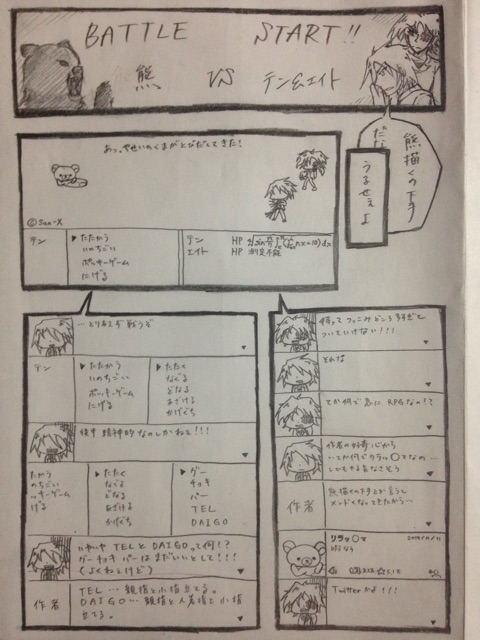 BATTLE START!!
熊 VS テン&エイト
熊描くの下手
だな
うるせぇよ
あっ、やせいのくまがとびだしてきた!
©San-X
テン
▶たたかう
いのちごい
ポッキーゲーム
にげる
テン HP
エイト HP 測定不能
…とりあえず戦うぞ
テン
▶たたかう
いのちごい
ポッキーゲーム
にげる
▶たたく
なぐる
どなる
あざける
かげぐち
後半 精神的なのしかねぇ!!!
たかう
のちごい
ッキーゲーム
げる
▶たたく
なぐる
どなる
あざける
かげぐち
▶グー
チョキ
パー
TEL
DAIGO
いやいや TELとDAIGOって何!?
グーチョキパーはまだいいとして!!!
(よくねぇけど)
作者
TEL…親指と小指立てる。
DAIGO…親指と人差指と小指
立てる。
待って ツッこみどころ多すぎて
ついていけない!!!
それな
てか何で急にRPGなの!?
作者の好奇心から
…てか何でリラッ○マなの…
しかもやる気なさそう
作者
熊描くの下手とか言うし
メンドくなってきたから…
リラッ○マ
Twitterかよ!!!